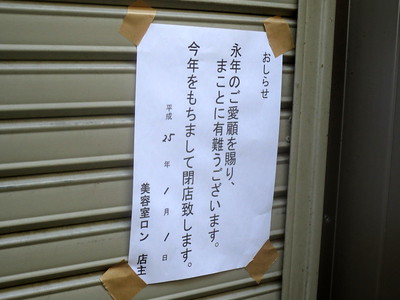 おしらせ
永年のご愛顧を賜り、
まことに有難うございます。
今年をもちまして閉店致します。
平成 25 年 1 月 1 日
美容室ロン 店主